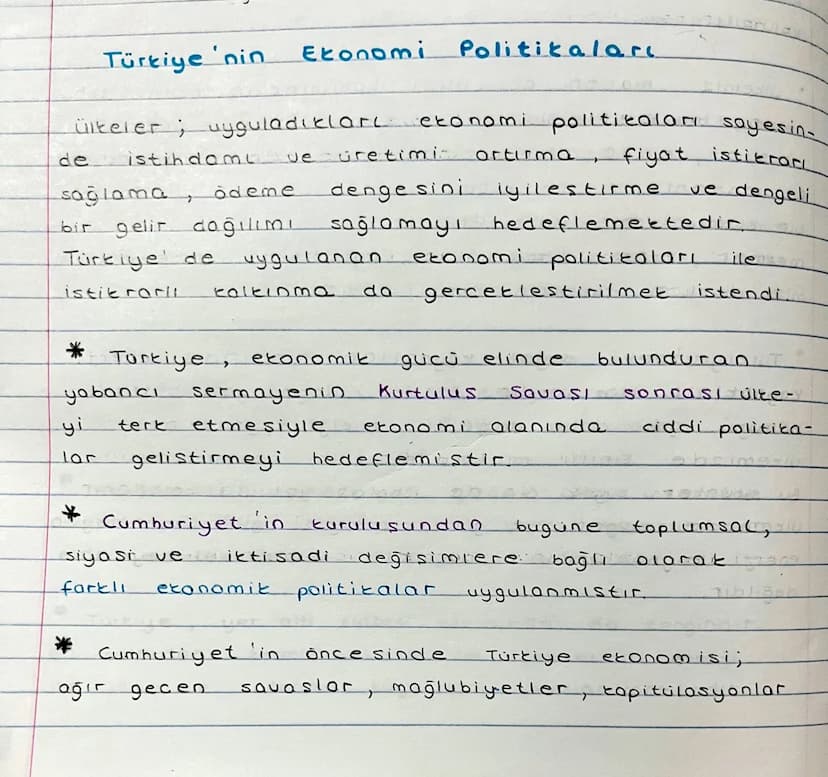 Türkiye'nin Ekonomi Politikaları
Ülkeler ; uyguladıkları ekonomi politikaları sayesin-
de istihdamı ve üretimi artırma , fiyat istikrarı
sağlama , ödeme dengesini iyilestirme ve dengeli
bir gelir dağılımı sağlamayı hedeflemektedir.
Türkiye' de uygulanan ekonomi politikaları ile
istikrarlı kalkınma da gerceklestirilmek istendi.
* Türkiye , ekonomik gücü elinde bulunduran
yabancı sermayenin Kurtulus Savası sonrası ülke-
yi terk etmesiyle ekonomi alanında ciddi politika-
lar gelistirmeyi hedeflemistir.
* Cumhuriyet 'in kurulusundan bugüne toplumsal,
siyasi ve iktisadi değisimlere bağlı olarak
farklı ekonomik politikalar uygulanmıstır.
* Cumhuriyet 'in öncesinde Türkiye ekonomisi;
ağır gecen savaslar , mağlubiyetler , kapitülasyonlar